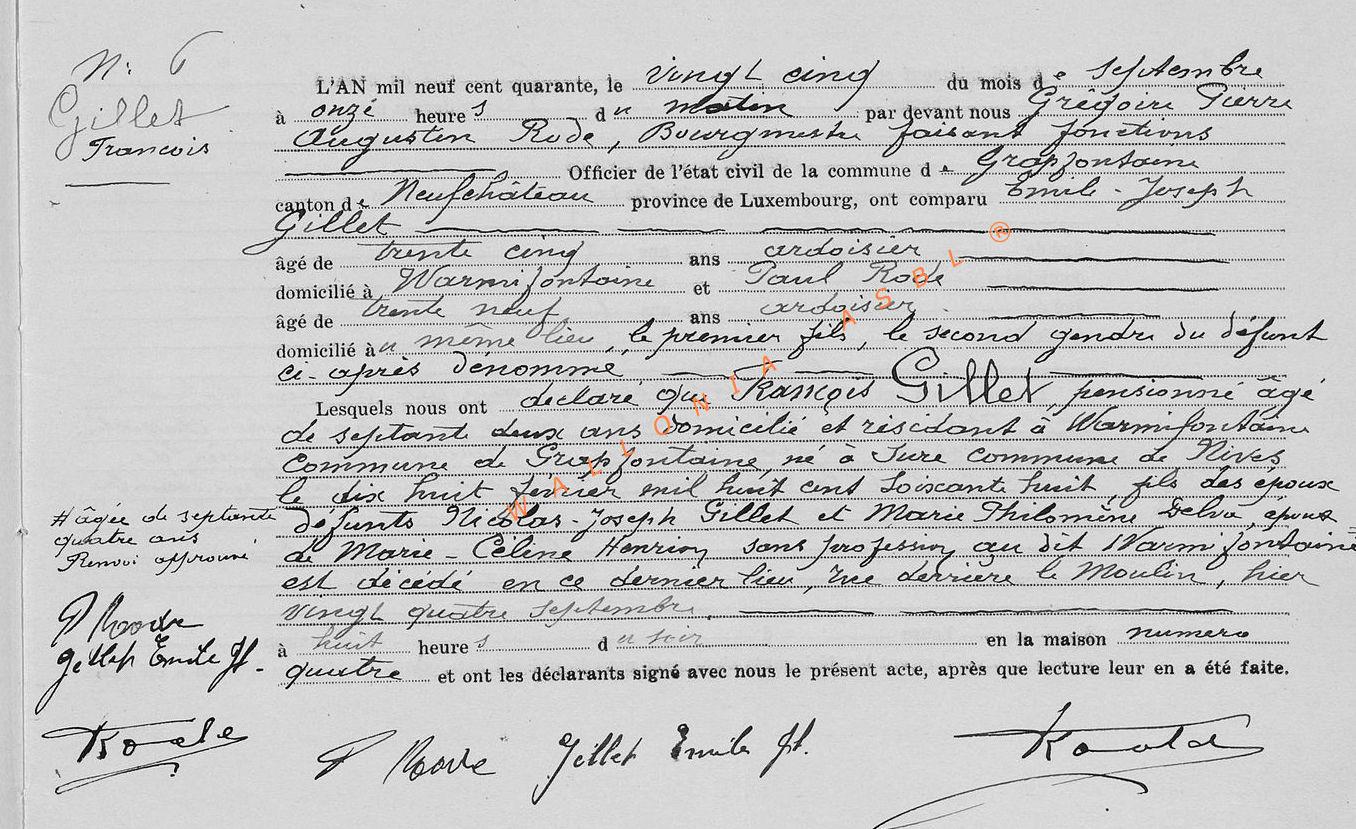 N: 6
Gillet
François
L'AN mil neuf cent quarante, le vingt cinq du mois de septembre
à onze heures du matin par devant nous Grégoire Pierre
Augustin Rode, Bourgmestre faisant fonctions
Officier de l'état civil de la commune de Grapfontaine
canton de Neufchâteau province de Luxembourg, ont comparu Emile-Joseph
Gillet
âgé de trente cinq ans ardoisier
domicilié à Warmifontaine et Paul Rode
âgé de trente neuf ans ardoisier
domicilié au même lieu, le premier fils, le second gendre du défunt
ci-après dénommé
Lesquels nous ont déclaré que François Gillet, pensionné âgé
de septante deux ans domicilié et résidant à Warmifontaine
commune de Grapfontaine, né à Sure commune de Nives
le dix huit février mil huit cent soixante huit, fils des époux
défunts Nicolas-Joseph Gillet et Marie Philomène Delva, époux
de Marie-Céline Henrion sans profession au dit Warmifontaine
est décédé en ce dernier lieu, rue derrière le Moulin, hier
vingt quatre septembre
à huit heures du soir en la maison numero
quatre et ont les déclarants signé avec nous le présent acte, après que lecture leur en a été faite.
# âgée de septante
quatre ans
Renvoi approuvé
P Rode
Gillet Emile Jh.
Rode
P Rode Gillet Emile Jh.
WALLONIA ASBL ®